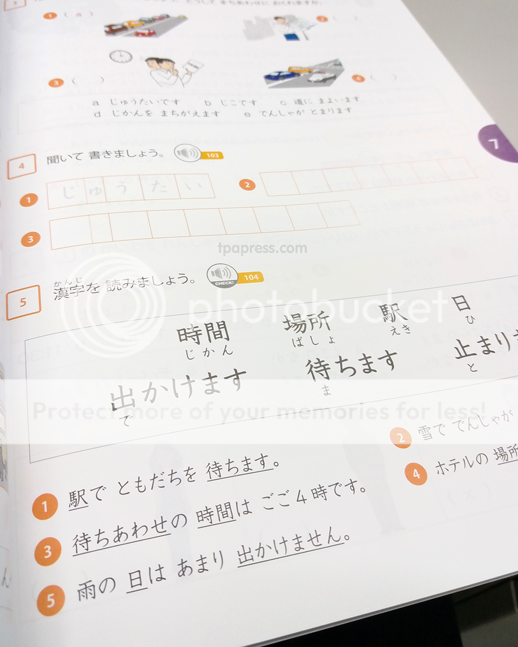 1 ( a ) 2 ( )
3 ( ) 4 ( )
a じゅうたいです b じこです c 道に まよいます
d じかんを まちがえます e でんしゃが とまります
7
4 聞いて 書きましょう。 103
1 じゅうたい 2
3
tpapress.com
5 漢字を 読みましょう。 CHECK! 104
かんじ
photobucket
時間 場所 駅 日
じかん ばしょ えき ひ
出かけます 待ちます 止まり
で ま と
Protect more of your memories for less!
1 駅で ともだちを 待ちます。
2 雪で でんしゃが
3 待ちあわせの 時間は ごご4時です。
4 ホテルの 場所
5 雨の 日は あまり 出かけません。